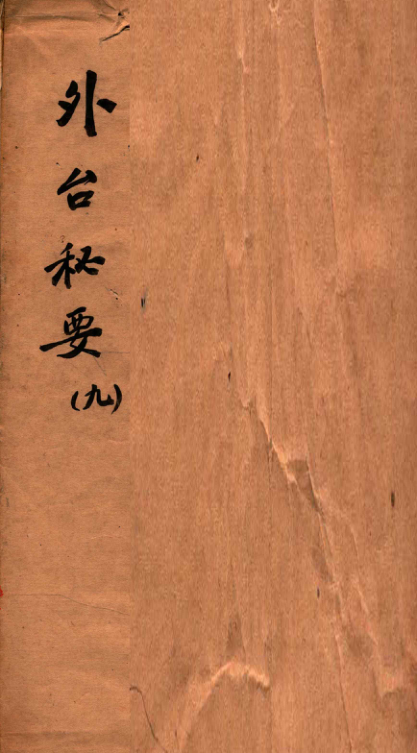 外台秘要
(九)